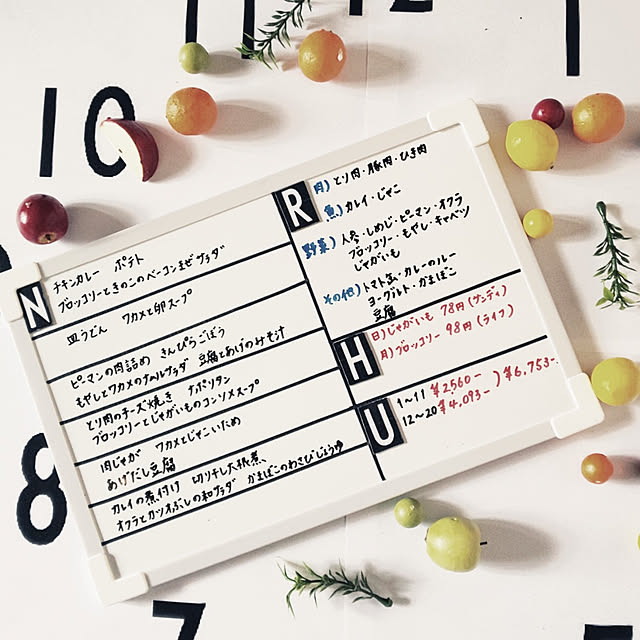 11
12
1
10
8
7
N
チキンカレー ポテト
ブロッコリーときのこのベーコンまぜサラダ
皿うどん ワカメと卵スープ
ピーマンの肉詰め きんぴらごぼう
もやしとワカメのナムルサラダ 豆腐とあげのみそ汁
とり肉のチーズ焼き ナポリタン
ブロッコリーとじゃがいものコンソメスープ
肉じゃが ワカメとじゃこいため
あげだし豆腐
カレイの煮付け 切り干し大根煮
オクラとカツオぶしの和サラダ かまぼこのわさびじょうゆ
R
肉)とり肉・豚肉・ひき肉
魚)カレイ・じゃこ
野菜)人参・しめじ・ピーマン・オクラ
ブロッコリー・もやし・キャベツ
じゃがいも
その他)トマト缶・カレーのルー
ヨーグルト・かまぼこ
豆腐
H
日)じゃがいも 78円(サンディ)
月)ブロッコリー 98円(ライフ)
U
1~11 ¥2,560-
12~20 ¥4,093-
) ¥6,753-